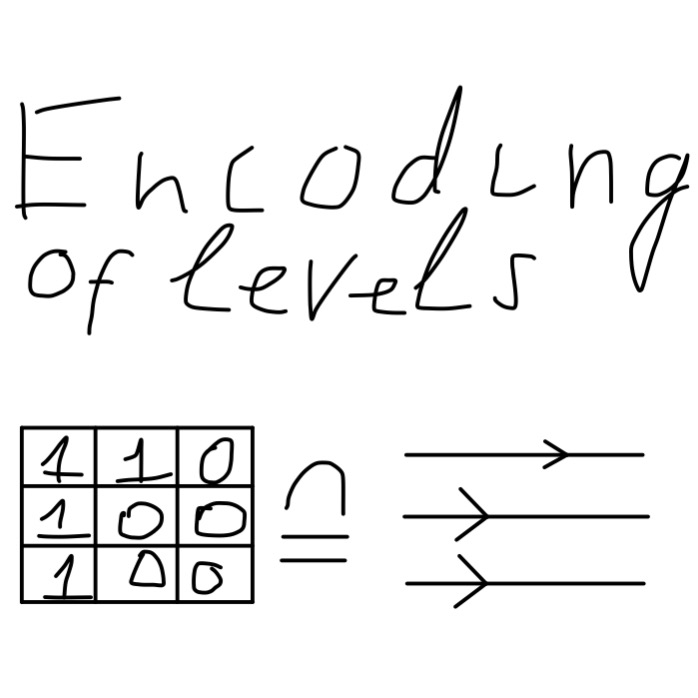 Encoding
of levels
1 1 0
1 0 0
1 0 0